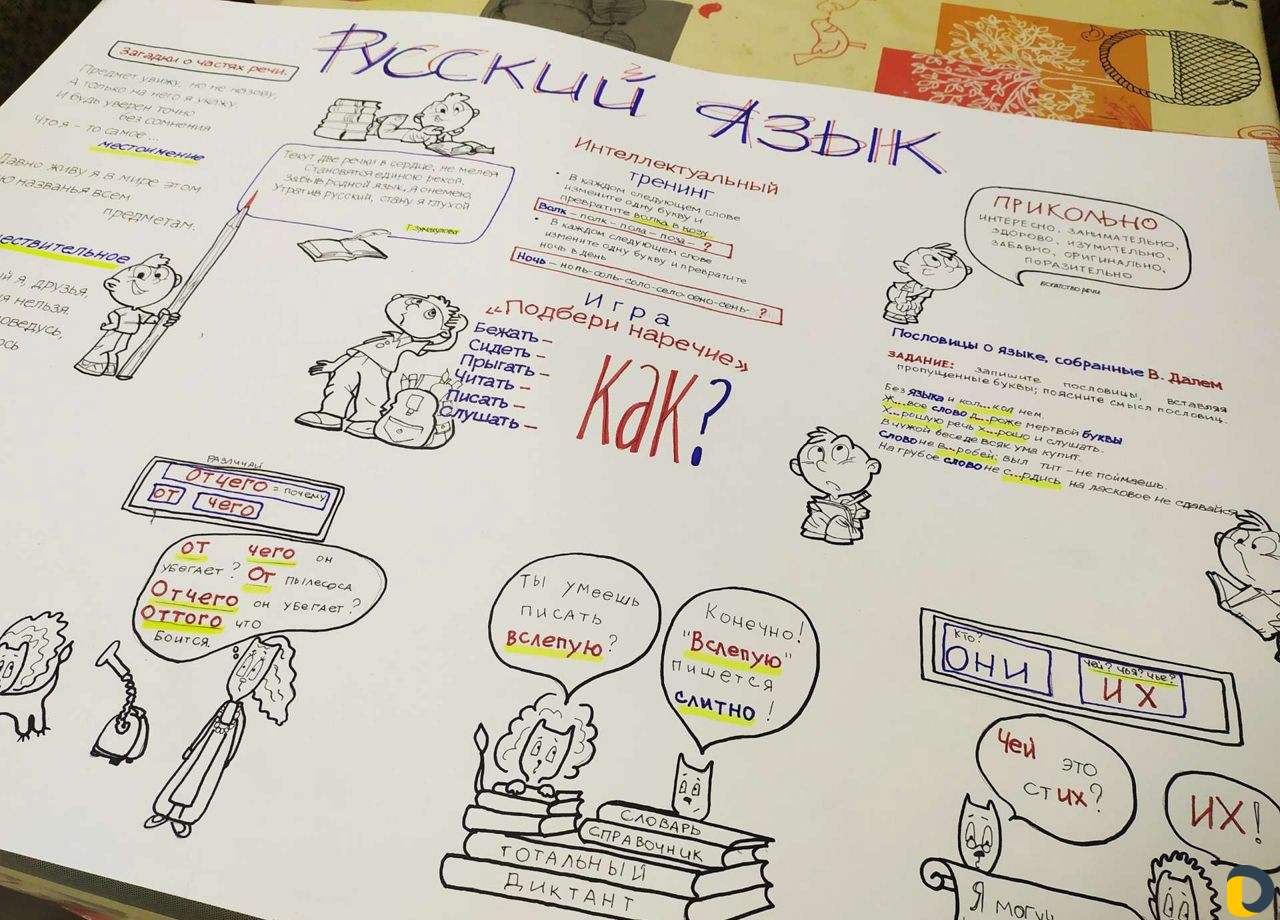 Русский язык
Загадки о частях речи.
Предмет увижу, но не назову,
А только на него я укажу.
И будь уверен точно
без сомнения
Что я – то самое...
местоимение
Давно живу я в мире этом
названья всем
предметам.
я, друзья,
нельзя
Текут две речки в сердце, не мелея
Становятся единою рекой.
Забыв родной язык, я онемею,
Утратив русский, стану я глухой
Интеллектуальный
тренинг
• В каждом следующем слове
измените одну букву и
превратите волка в козу.
Волк – полк – пола – поза – ?
• В каждом следующем слове
измените одну букву и превратите
ночь в день
Ночь – ноль-соль-соло-село-сено-сень- ?
Игра
«Подбери наречие»
Бежать –
Сидеть –
Прыгать –
Читать –
Писать –
Слушать –
Как?
ПРИКОЛЬНО
ИНТЕРЕСНО, ЗАНИМАТЕЛЬНО,
ЗДОРОВО, ИЗУМИТЕЛЬНО,
ЗАБАВНО, ОРИГИНАЛЬНО,
ПОРАЗИТЕЛЬНО
БОГАТСТВО РЕЧИ
Пословицы о языке, собранные В. Далем
ЗАДАНИЕ: запишите пословицы, вставляя
пропущенные буквы; поясните смысл пословиц.
Без языка и кол...кол нем.
Ж...вое слово д...роже мертвой буквы
Х...рошую речь х...рошо и слушать.
В чужой беседе всяк ума купит.
Слово не в...робей: выл тит – не поймаешь.
На грубое слово не с...рдись, на ласковое не сдавайся
РАЗЛИЧАЙ
Отчего = почему
от чего
от чего он
убегает? От пылесоса
Отчего он убегает?
Оттого что
боится.
Ты умеешь
писать
вслепую?
Конечно!
"Вслепую"
пишется
слитно!
СЛОВАРЬ
СПРАВОЧНИК
ТОТАЛЬНЫЙ
ДИКТАНТ
КТО?
ОНИ
ЧЕЙ? ЧЬЯ? ЧЬЕ?
ИХ
Чей это
стих?
ИХ!
Я могу